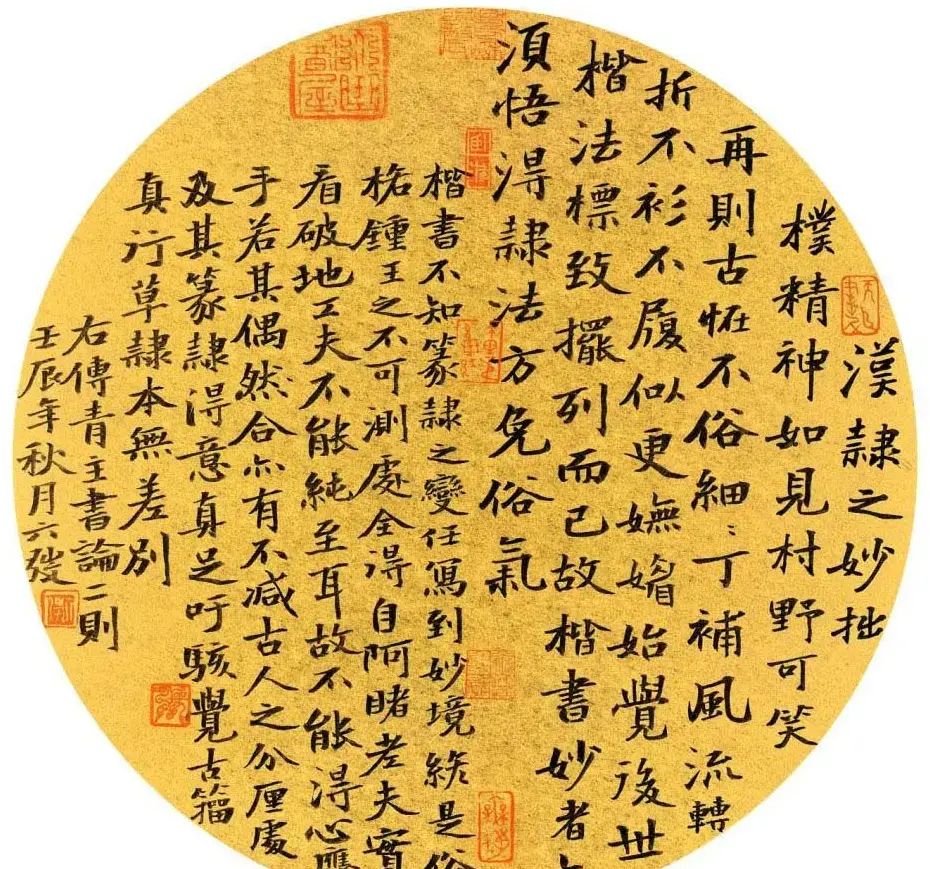 漢隷之妙拙
樸精神如見村野可笑
再則古怪不俗細〻丁補風流轉
折不衫不履似更嫵媚始覺後世
楷法標致擺列而已故楷書妙者
須悟得隷法方免俗氣
楷書不知篆隷之變任寫到妙境終是俗
格鍾王之不可測處全得自阿睹老夫實
看破地工夫不能純至耳故不能得心應
手若其偶然合亦有不减古人之分厘處
及其篆隷得意真足吁駭覺古籀
真行草隷本無差別
右傳青主書論二則
壬辰年秋月六發